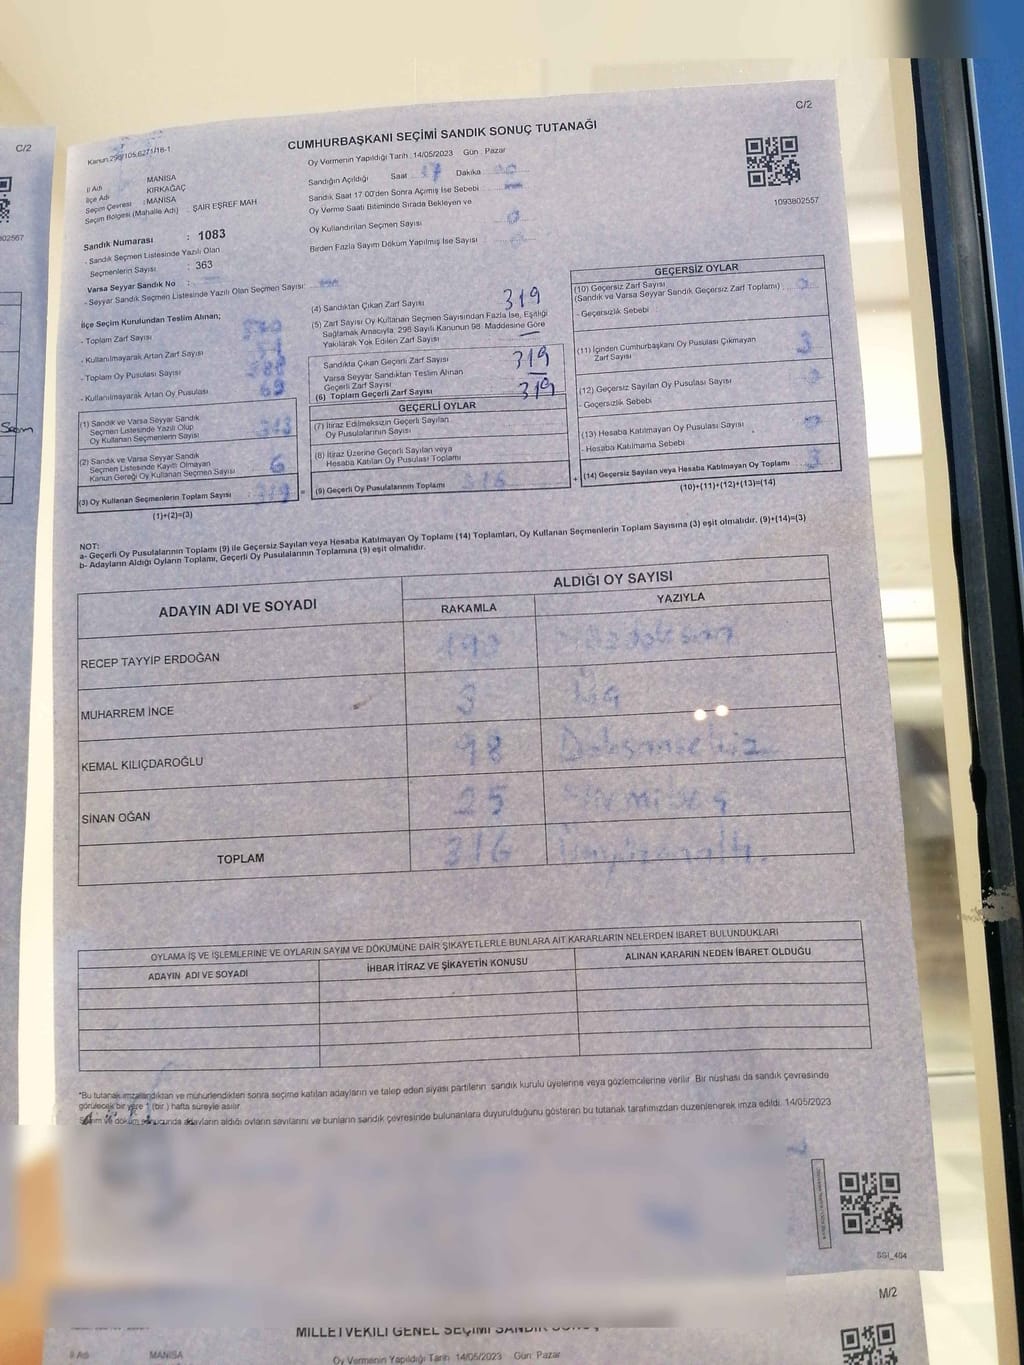 C/2
C/2
CUMHURBAŞKANI SEÇİMİ SANDIK SONUÇ TUTANAĞI
Kanun:298/105,6271/16-1
Oy Vermenin Yapıldığı Tarih :14/05/2023 Gün : Pazar
İl Adı : MANİSA
İlçe Adı : KIRKAĞAÇ
Seçim Çevresi : MANİSA
Seçim Bölgesi (Mahalle Adı) : ŞAİR EŞREF MAH
Sandığın Açıldığı Saat 17 Dakika 00
Sandık Saat 17:00'den Sonra Açımış İse Sebebi
Oy Verme Saati Bitiminde Sırada Bekleyen ve
Oy Kullandırılan Seçmen Sayısı
Birden Fazla Sayım Döküm Yapılmış İse Sayısı
1093802557
Sandık Numarası : 1083
- Sandık Seçmen Listesinde Yazılı Olan
Seçmenlerin Sayısı : 363
Varsa Seyyar Sandık No :
- Seyyar Sandık Seçmen Listesinde Yazılı Olan Seçmen Sayısı:
İlçe Seçim Kurulundan Teslim Alınan;
- Toplam Zarf Sayısı
- Kullanılmayarak Artan Zarf Sayısı
- Toplam Oy Pusulası Sayısı
- Kullanılmayarak Artan Oy Pusulası 69
(1) Sandık ve Varsa Seyyar Sandık
Seçmen Listesinde Yazılı Olup
Oy Kullanan Seçmenlerin Sayısı 313
(2) Sandık ve Varsa Seyyar Sandık
Seçmen Listesinde Kayıtlı Olmayan
Kanun Gereği Oy Kullanan Seçmen Sayısı 6
(3) Oy Kullanan Seçmenlerin Toplam Sayısı 319
(1)+(2)=(3)
(4) Sandıktan Çıkan Zarf Sayısı 319
(5) Zarf Sayısı Oy Kullanan Seçmen Sayısından Fazla İse, Eşitliği
Sağlamak Amacıyla; 298 Sayılı Kanunun 98. Maddesine Göre
Yakılarak Yok Edilen Zarf Sayısı
Sandıkta Çıkan Geçerli Zarf Sayısı 319
Varsa Seyyar Sandıktan Teslim Alınan
Geçerli Zarf Sayısı
(6) Toplam Geçerli Zarf Sayısı 319
GEÇERLİ OYLAR
(7) İtiraz Edilmeksizin Geçerli Sayılan
Oy Pusulalarının Sayısı
(8) İtiraz Üzerine Geçerli Sayılan veya
Hesaba Katılan Oy Pusulası Toplamı
(9) Geçerli Oy Pusulalarının Toplamı 316
GEÇERSİZ OYLAR
(10) Geçersiz Zarf Sayısı
(Sandık ve Varsa Seyyar Sandık Geçersiz Zarf Toplamı)
- Geçersizlik Sebebi
(11) İçinden Cumhurbaşkanı Oy Pusulası Çıkmayan
Zarf Sayısı 3
(12) Geçersiz Sayılan Oy Pusulası Sayısı
- Geçersizlik Sebebi
(13) Hesaba Katılmayan Oy Pusulası Sayısı
- Hesaba Katılmama Sebebi
(14) Geçersiz Sayılan veya Hesaba Katılmayan Oy Toplamı 3
(10)+(11)+(12)+(13)=(14)
NOT:
a- Geçerli Oy Pusulalarının Toplamı (9) ile Geçersiz Sayılan veya Hesaba Katılmayan Oy Toplamı (14) Toplamları, Oy Kullanan Seçmenlerin Toplam Sayısına (3) eşit olmalıdır. (9)+(14)=(3)
b- Adayların Aldığı Oyların Toplamı, Geçerli Oy Pusulalarının Toplamına (9) eşit olmalıdır.
ADAYIN ADI VE SOYADI
ALDIĞI OY SAYISI
RAKAMLA YAZIYLA
RECEP TAYYİP ERDOĞAN 190
MUHARREM İNCE 3 Üç
KEMAL KILIÇDAROĞLU 98 Doksansekiz
SİNAN OĞAN 25
TOPLAM 316 Üçyüzonaltı.
OYLAMA İŞ VE İŞLEMLERİNE VE OYLARIN SAYIM VE DÖKÜMÜNE DAİR ŞİKAYETLERLE BUNLARA AİT KARARLARIN NELERDEN İBARET BULUNDUKLARI
ADAYIN ADI VE SOYADI İHBAR İTİRAZ VE ŞİKAYETİN KONUSU ALINAN KARARIN NEDEN İBARET OLDUĞU
*Bu tutanak imzalandıktan ve mühürlendikten sonra seçime katılan adayların ve talep eden siyasi partilerin sandık kurulu üyelerine veya gözlemcilerine verilir. Bir nüshası da sandık çevresinde
görülecek bir yere 1 (bir) hafta süreyle asılır.
Sayım ve döküm sonucunda adayların aldığı oyların sayılarını ve bunların sandık çevresinde bulunanlara duyurulduğunu gösteren bu tutanak tarafımızdan düzenlenerek imza edildi. 14/05/2023
SSI_464
M/2
MİLLETVEKİLİ GENEL SEÇİMİ SANDIK SONUÇ
İl Adı MANİSA
Oy Vermenin Yapıldığı Tarih :14/05/2023 Gün: Pazar